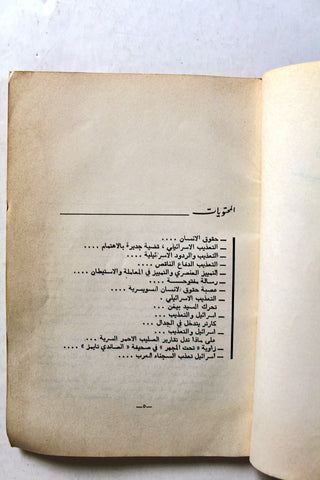 المحتويات
ــ حقوق الانسان ....
ــ التعذيب الاسرائيلي ، قضية جديرة بالاهتمام ....
ــ التعذيب والردود الاسرائيلية ....
ــ التعذيب الدفاع الناقص ....
ــ التمييز العنصري والتمييز في المعاملة والاستيطان ....
ــ رسالة مفتوحـــة ....
ــ عصبة حقوق الانسان السويسرية ....
ــ التعذيب الاسرائيلي .
تحرك السيد بيغن ....
ــ اسرائيل والتعذيب ....
كارتر يتدخل في الجدال ....
ــ اسرائيل والتعذيب ...
على ماذا تدل تقارير الصليب الاحمر السرية ....
ــ زاوية « تحت المجهر » في صحيفة « الصاندي تايمز » ....
ــ اسرائيل تعذب السجناء العرب ....
ــ ٥ ــ